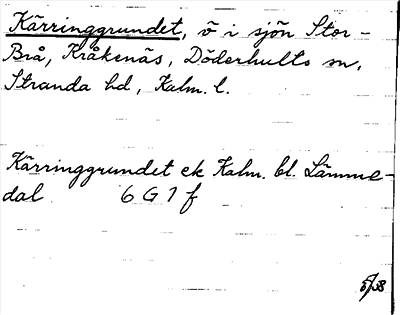 Kärringgrundet, ö i sjön Stor-
Brå, Kråkenäs, Döderhults sn,
Stranda hd, Kalm. l.
Kärringgrundet ek Kalm. bl. Lämme-
dal 6 G 7 f
5/38